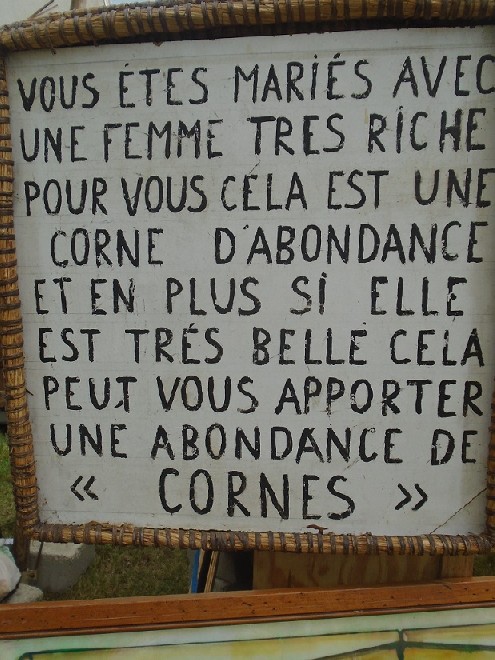 VOUS ÉTES MARIÉS AVEC
UNE FEMME TRES RICHE
POUR VOUS CELA EST UNE
CORNE D'ABONDANCE
ET EN PLUS SI ELLE
EST TRÉS BELLE CELA
PEUT VOUS APPORTER
UNE ABONDANCE DE
« CORNES »